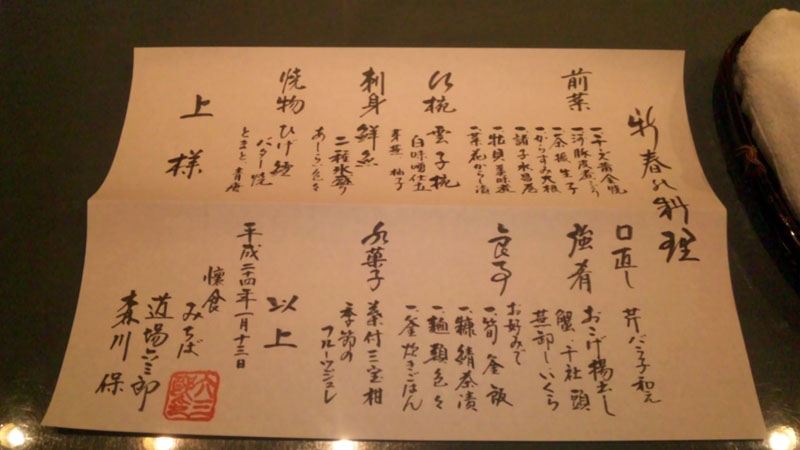 新春の料理
前菜
一、干し黄金焼
一、河豚煮こごり
一、茶振生子
一、からすみ大根
一、諸子水昌尾
一、牡貝美味煮
一、菜花からし漬
吸椀
雲子椀
白味噌仕立
芽葱 柚子
刺身
鮮魚
二種氷盛り
あしらい色々
焼物
ひげ鱈
バター焼
とまと、青唐
上様
口直し
芹バラ子和え
強肴
おこげ揚出し
蟹、干社頭
蒸卸し、いくら
食事
お好みで
一、筍釜飯
一、糠鯖茶漬
一、麺類色々
一、釜炊きごはん
水菓子
葉付三宝柑
季節の
フルーツジュレ
以上
平成二十四年一月十三日
懐食
みちば
道場六三郎
森川保